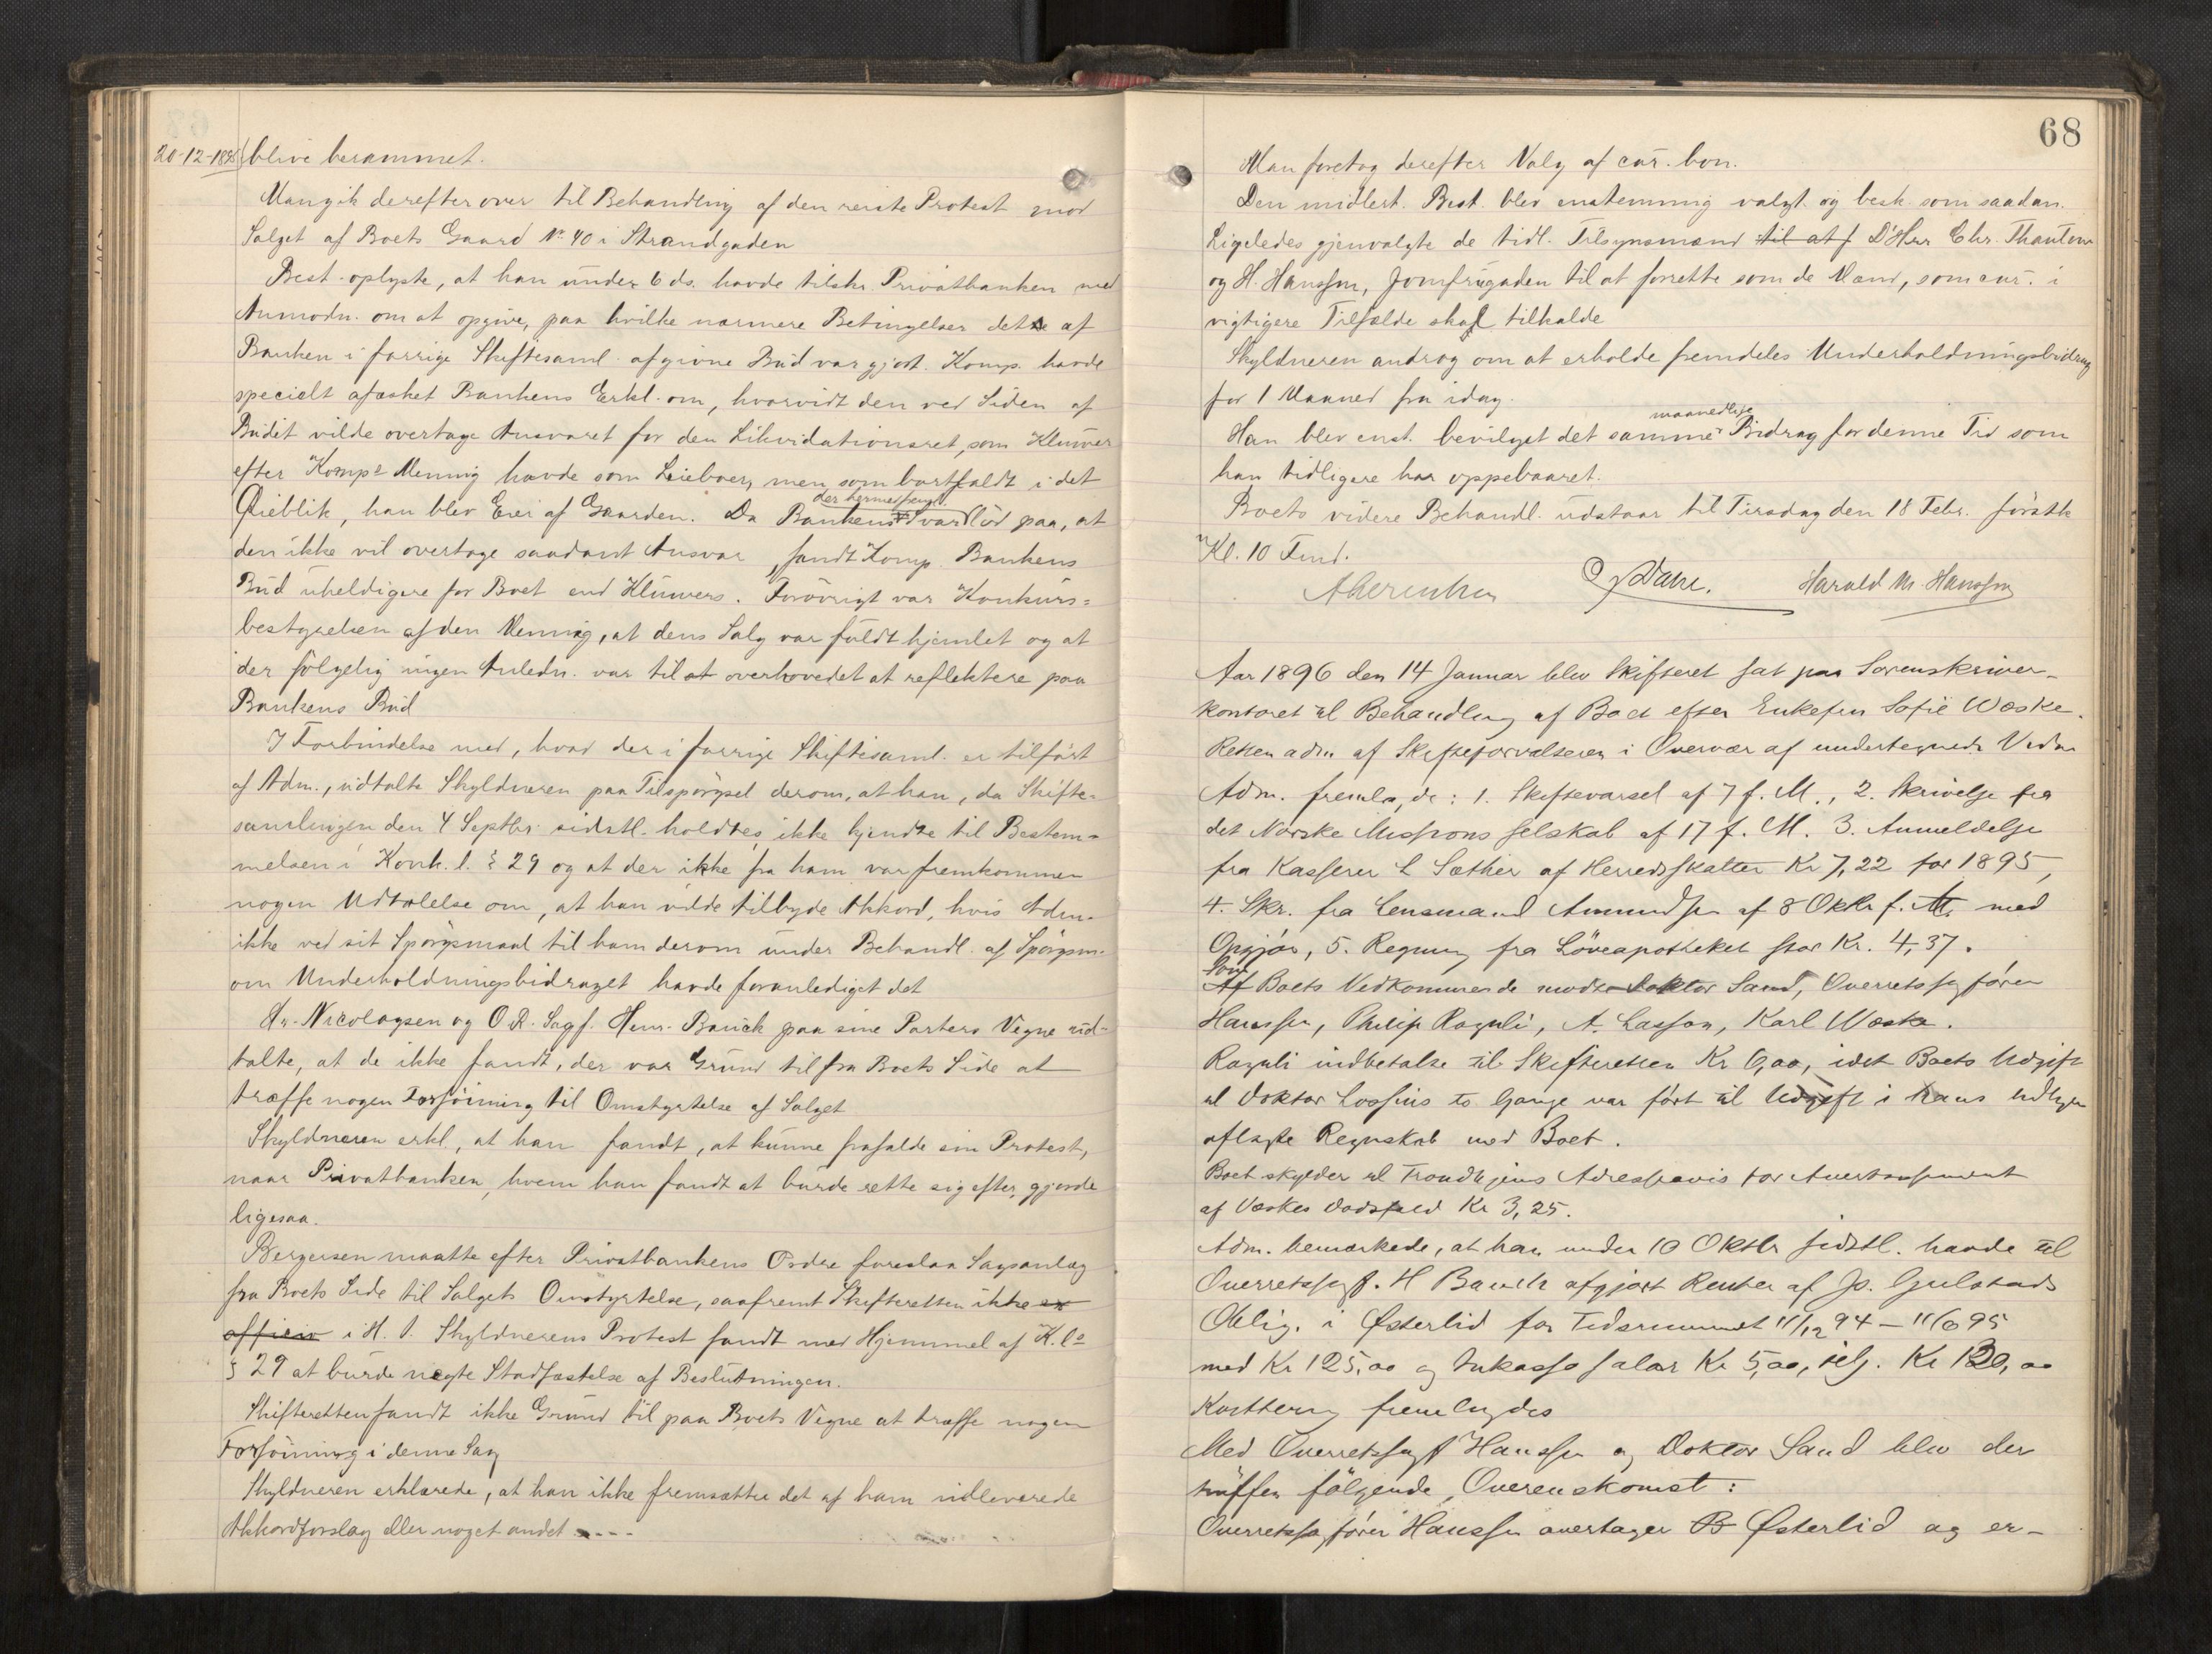 20-12-1895 blive berammet.
Man gik derefter over til Behandling af den reiste Protest mod
Salget af Boets Gaard No 40 i Strandgaden
Best. oplyste, at han under 6 ds. havde tilskr. Privatbanken med
Anmodn. om at opgive, paa hvilke nærmere Betingelser det af
Banken i forrige Skiftesaml. afgivne Bud var gjort. Komp. havde
specielt afæsket Bankens Erkl. om, hvorvidt den ved Siden af
Budet vilde overtage Ansvaret for den Likvidationsret, som Klüwer
efter Komps Mening havde som Leieboer, men som bortfaldt i det
Øieblik, han blev Eier af Gaarden. Da Bankens der hermed fremlgt. Svar lød paa, at
den ikke vil overtage saadant Ansvar, fandt Komp. Bankens
Bud uheldigere for Boet end Klüwers. Forøvrigt var Konkurs=
bestyrelsen af den Mening, at dens Salg var fuldt hjemlet og at
der følgelig ingen Anledn. var til at overhovedet at reflektere paa
Bankens Bud
I Forbindelse med, hvad der i forrige Skiftesaml. er tilført
af Adm., udtalte Skyldneren paa Tilspørgsel derom, at han, da Skifte-
samlingen den 4 Septbr. sidstl. holdtes, ikke kjendte til Bestem-
melsen i Konk. l. § 29 og at der ikke fra ham var fremkommen
nogen Udtalelse om, at han vilde tilbyde Akkord, hvis Adm.
ikke ved sit Spørgsmaal til ham derom under Behandl. af Spørgsm.
om Underholdningsbidraget havde foranlediget det
Hr. Nicolaysen og O.R. Sagf. Henr. Bauck paa sine Parters Vegne ud-
talte, at de ikke fandt, der var Grund til fra Boets Side at
træffe nogen Forføining til Omstyrtelse af Salget
Skyldneren erkl., at han fandt, at kunne frafalde sin Protest,
naar Privatbanken, hvem han fandt at burde rette sig efter, gjorde
ligesaa.
Bergersen maatte efter Privatbankens Ordre foreslaa Sagsanlæg
fra Boets Side til Salgets Omstyrtelse, saafremt Skifteretten ikke ex
officio i H. t. Skyldnerens Protest fandt med Hjemmel af K.l.
§ 29 at burde negte Stadfæstelse af Beslutningen.
Skifteretten fandt ikke Grund til paa Boets Vegne at træffe nogen
Forføining i denne Sag
Skyldneren erklærede, at han ikke fremsætter det af ham udleverede
Akkordforslag eller noget andet ----
68
Man foretog derefter Valg af cur. bon.
Den midlert. Best. blev enstemmig valgt og besk. som saadan.
Ligeledes gjenvalgte de tidl. Tilsynsmænd til at f D'Hrr Chr. Thaulow
og H. Hansson, Jomfrugaden til at forrette som de Mænd, som cur. i
vigtigere Tilfælde skal tilkalde
Skyldneren androg om at erholde fremdeles Underholdningsbidrag
for 1 Maaned fra idag.
Han blev enst. bevilget det samme maanedlige Bidrag for denne Tid som
han tidligere har oppebaaret.
Boets videre Behandl. udstaar til Tirsdag den 18 Febr. førstk
Kl. 10 Fmd.
Harald M. Hansson
Aar 1896 den 14 Januar blev Skifteret sat paa Sorenskriver-
kontoret til Behandling af Boet efter Enkefru Sofie Wæske.
Retten adm. af Skifteforvalteren i Overvær af undertegnede Vidner
Adm. fremlagde: 1. Skiftevarsel af 7 f. M., 2. Skrivelse fra
det Norske Missionsselskab af 17 f. M. 3. Anmeldelse
fra Kasserer L Sæther af Herredsskatter Kr 7,22 for 1895,
4. Skr. fra Lensmand Amundsen af 8 Oktbr f. A. med
Opgjør, 5. Regning fra Løveapotheket stor Kr. 4,37.
Som Af Boets Vedkommende mødte Doktor Sand, Overretssagfører
Hansson, Philip Roguli, A. Lasson, Karl Wæske.
Roguli indbetalte til Skifteretten Kr 6,00, idet Boets Udgift
til Doktor Lossius to Gange var ført til Udgift i hans tidligere
aflagte Regnskab med Boet.
Boet skylder til Trondhjems Adresseavis for Avertissement
af Væskes Dødsfald Kr 3,25.
Adm. bemærkede, at han under 10 Oktbr sidstl. havde til
Overretssagf. H Bauck afgjort Renter af Jo. Gulstads
Oblig. i Østerlid for Tidsrummet 11/12 94 – 11/6 95
med Kr 125,00 og Inkassosalær Kr 5,00, ialt Kr 130,00
Kvittering fremlagdes
Med Overretssagf Hansson og Doktor Sand blev der
truffen følgende Overenskomst:
Overretssagfører Hansson overtager B Østerlid og er-